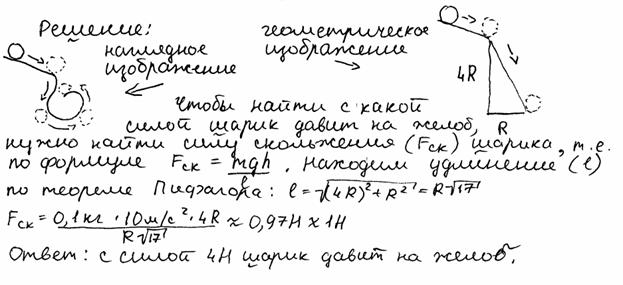 Решение:
наглядное
изображение
геометрическое
изображение
4R
R
Чтобы найти с какой
силой шарик давит на желоб,
нужно найти силу скольжения (Fск) шарика, т.е.
по формуле Fск = mgh/l. Находим удлинение (l)
по теореме Пифагора: l = √((4R)²+R²) = R√17
Fск = 0,1кг · 10м/с² · 4R / R√17 ≈ 0,97Н ≈ 1Н
Ответ: с силой 4Н шарик давит на желоб.